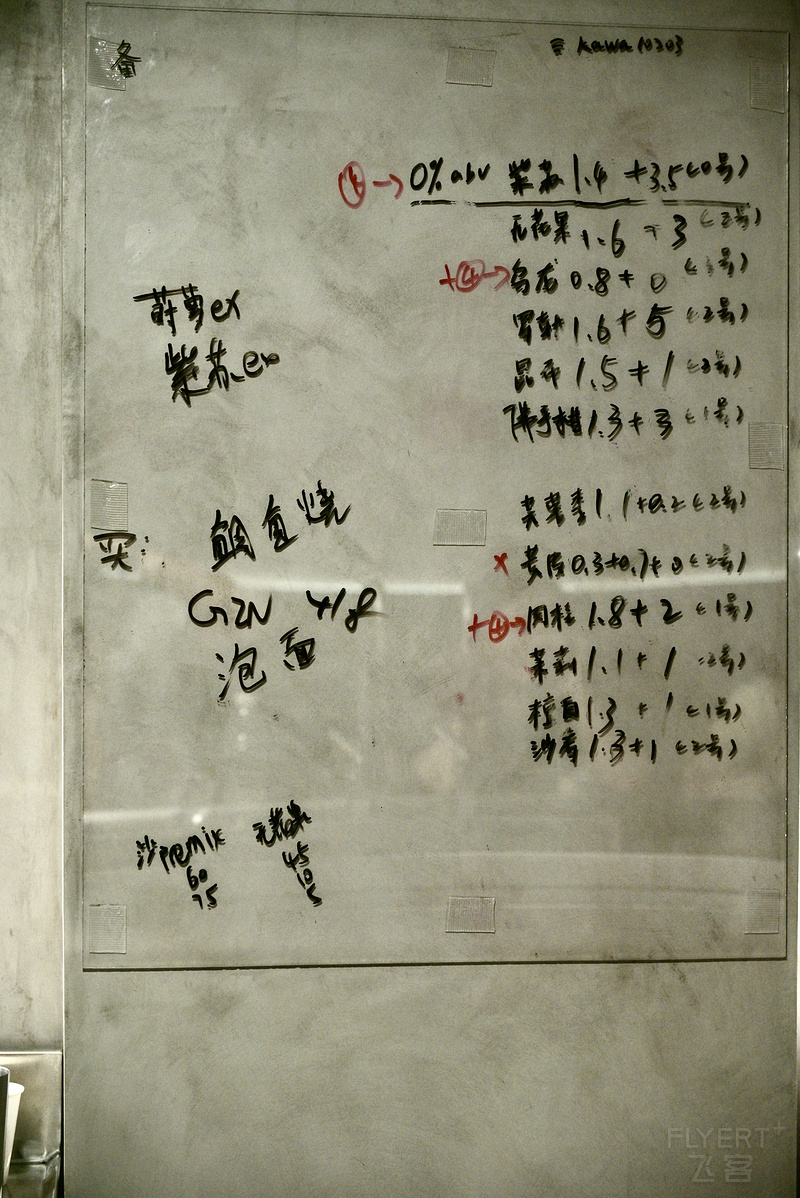 备
kawa 10303
0% abv 紫苏 1.4 + 3.5 (0号)
无花果 1.6 + 3 (2号)
+④→ 乌龙 0.8 + 0
1.6 + 5 (2号)
昆布 1.5 + 1 (2号)
佛手柑 1.3 + 3 (1号)
1.1 + 0.2 (2号)
x 0.3+0.7+0 (2号)
+④→ 肉桂 1.8 + 2 (1号)
茉莉 1.1 + 1 (2号)
1.3 + 1 (1号)
沙 1.3+1 (2号)
ex
紫苏 ex
买:
直烧
泡面
沙 premix
60
75
无花果
45
10
5
FLYERT+
飞客